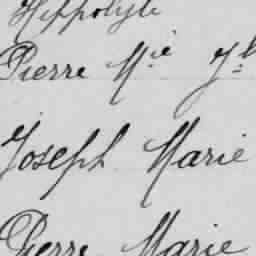 Hippolyte
Pierre Mie Jh
Joseph Marie
Pierre Marie